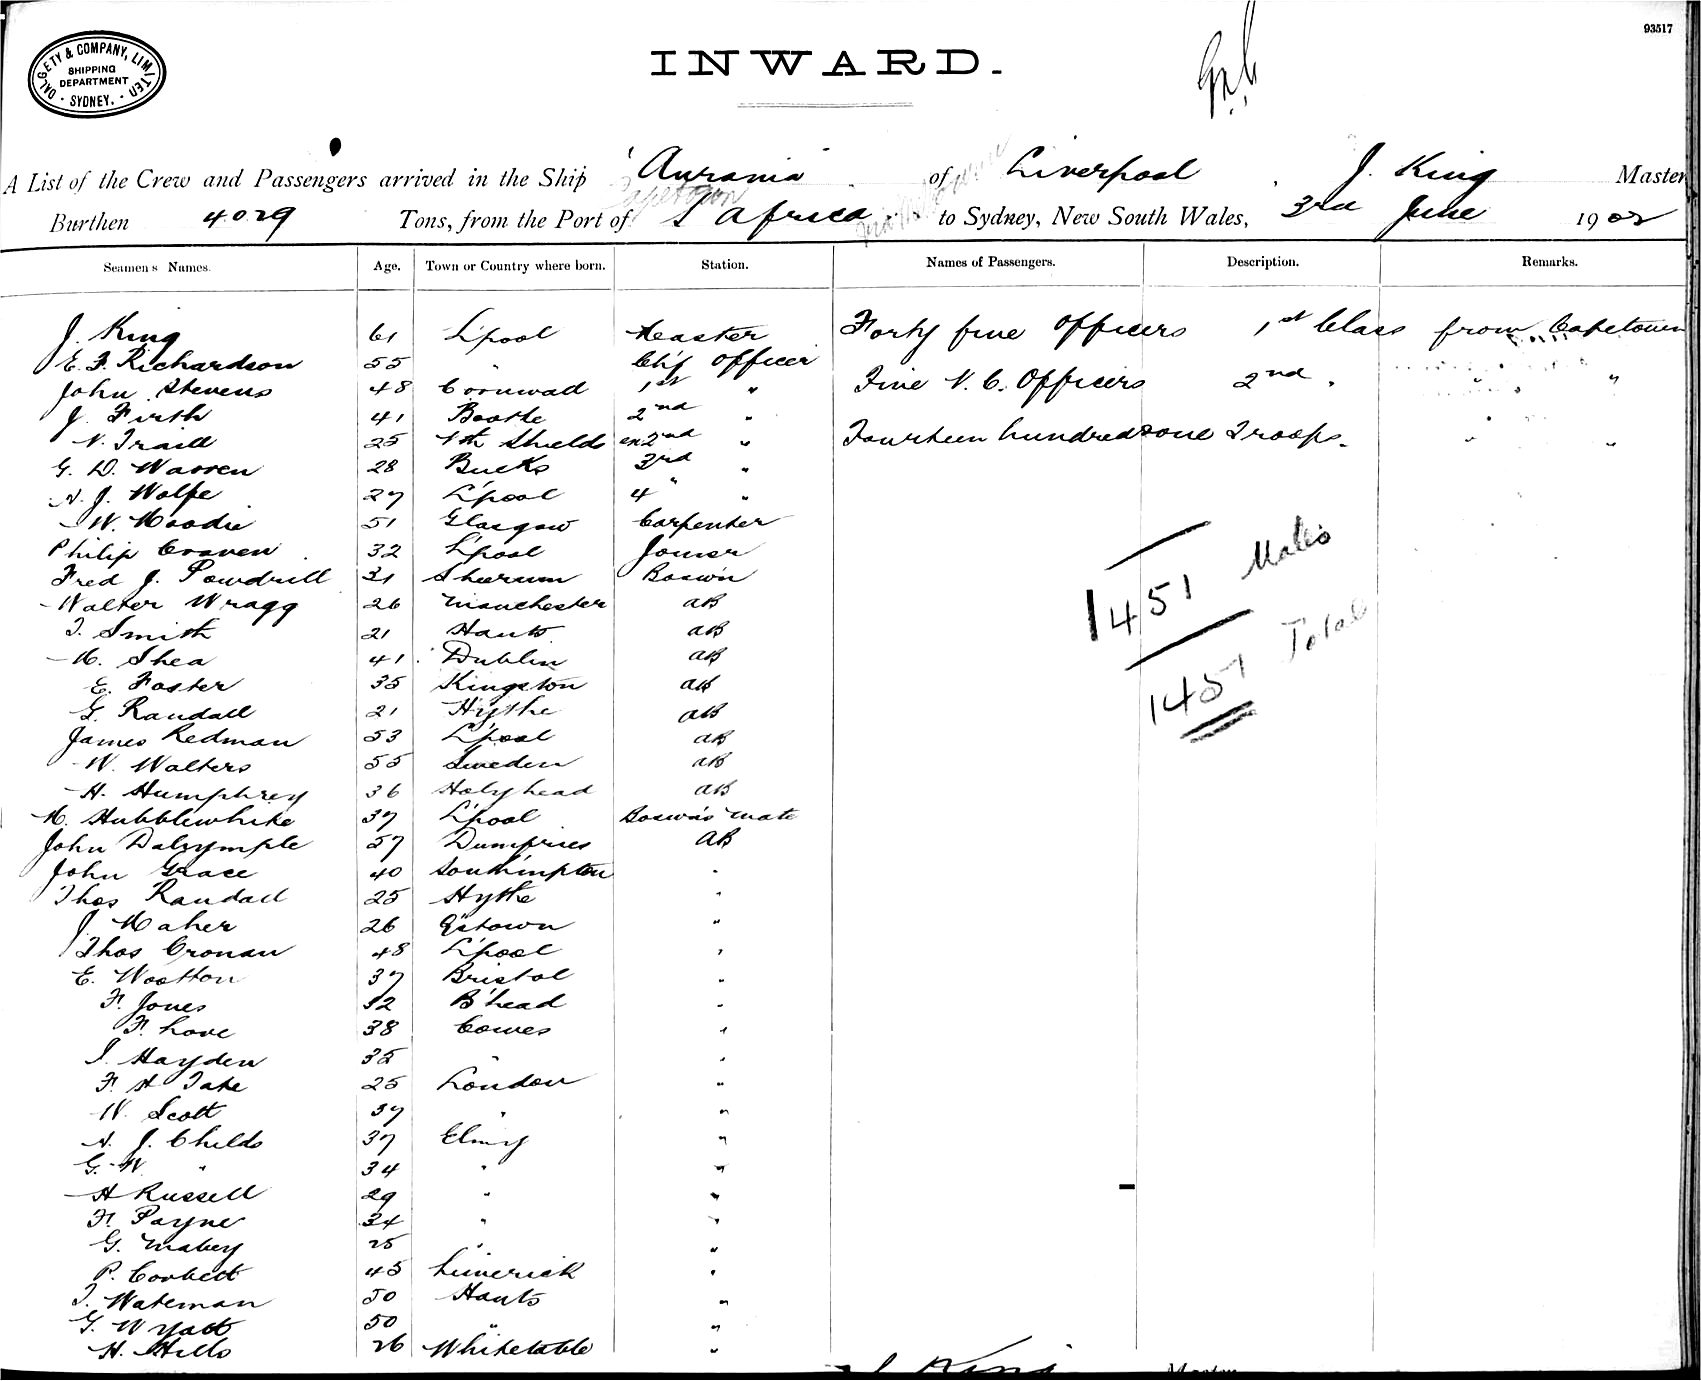 DALGETY & COMPANY, LIMITED
SHIPPING
DEPARTMENT
SYDNEY.
93517
INWARD.
A List of the Crew and Passengers arrived in the Ship Aurania of Liverpool, J. King Master
Burthen 4029 Tons, from the Port of Capetown S Africa to Sydney, New South Wales, 3rd June 1902
Seamen's Names. Age. Town or Country where born. Station. Names of Passengers. Description. Remarks.
J. King 61 L'pool Master Forty five Officers 1st Class from Capetown
E. F. Richardson 55 " Chf Officer
John Stevens 48 Cornwall 1st " Five N. C. Officers 2nd " " "
J. Firth 41 Bootle 2nd "
N. Traill 25 Nth Shields ex 2nd " Fourteen hundred & one Troops. " "
G. D. Warren 28 Bucks 3rd "
A. J. Wolfe 27 L'pool 4 " "
W. Moodie 51 Glasgow Carpenter
Philip Craven 32 L'pool Joiner
Fred J. Powdrill 31 Bos'n
Walter Wragg 26 Manchester AB
T. Smith 21 Hants AB
M. Shea 41 Dublin AB
E. Foster 35 Kingston AB
G. Randall 21 Hythe AB
James Redman 53 L'pool AB
W. Walters 55 Sweden AB
H. Humphrey 36 Holyhead AB
M. Hubblewhite 37 L'pool Boswns Mate
John Dalrymple 57 Dumfries AB
John Grace 40 South'mpton "
Thos Randall 25 Hythe "
J. Maher 26 Q'stown "
Thos Cronan 48 L'pool "
E. Wootton 37 Bristol "
F. Jones 32 B'head "
F. Love 38 Cowes "
J. Hayden 35 " "
F. H Tate 25 London "
W. Scott 37 " "
A. J. Childs 37 "
G. W. " 34 " "
H Russell 29 " "
F. Payne 34 " "
G. Mabey 25 " "
P. Corbett 45 Limerick "
T. Wateman 50 Hants "
G. Wyatt 50 " "
H. Hills 26 Whitstable "
1451 Males
1457 Total
J. King Master